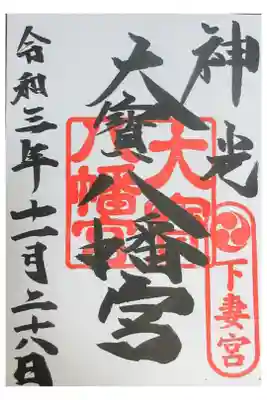 神光
大寳八幡宮
大寳
八幡宮
下妻宮
令和三年十一月二十八日